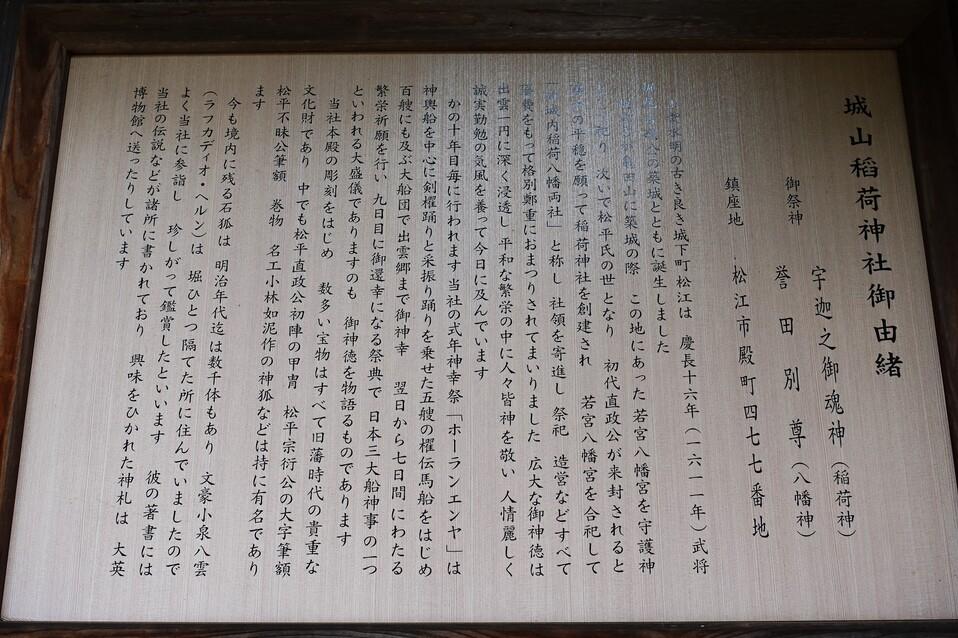 城山稻荷神社御由緒
御祭神　宇迦之御魂神（稲荷神）
誉田別尊（八幡神）
鎮座地　松江市殿町四七七番地
水明の古き良き城下町松江は　慶長十六年（一六一一年）武将
公の築城とともに誕生しました
田山に築城の際　この地にあった若宮八幡宮を守護神
祀り　次いで松平氏の世となり　初代直政公が来封されると
の平穏を願って稲荷神社を創建され　若宮八幡宮を合祀して
城内稲荷八幡両社」と称し　社領を寄進し　祭祀　造営などすべて
藩費をもって格別鄭重におまつりされてまいりました　広大な御神徳は
出雲一円に深く浸透し　平和な繁栄の中に人々皆神を敬い　人情麗しく
誠実勤勉の気風を養って今日に及んでいます
かの十年目毎に行われます当社の式年神幸祭「ホーランエンヤ」は
神輿船を中心に剣櫂踊りと采振り踊りを乗せた五艘の櫂伝馬船をはじめ
百艘にも及ぶ大船団で出雲郷まで御神幸　翌日から七日間にわたる
繁栄祈願を行い　九日目に御還幸になる祭典で　日本三大船神事の一つ
といわれる大盛儀でありますのも　御神徳を物語るものであります
当社本殿の彫刻をはじめ　数多い宝物はすべて旧藩時代の貴重な
文化財であり　中でも松平直政公初陣の甲冑　松平宗衍公の大字筆額
松平不昧公筆額　巻物　名工小林如泥作の神狐などは持に有名であり
ます
今も境内に残る石狐は　明治年代迄は数千体もあり　文豪小泉八雲
（ラフカディオ・ヘルン）は　堀ひとつ隔てた所に住んでいましたので
よく当社に参詣し　珍しがって鑑賞したといいます　彼の著書には
当社の伝説などが諸所に書かれており　興味をひかれた神札は　大英
博物館へ送ったりしています